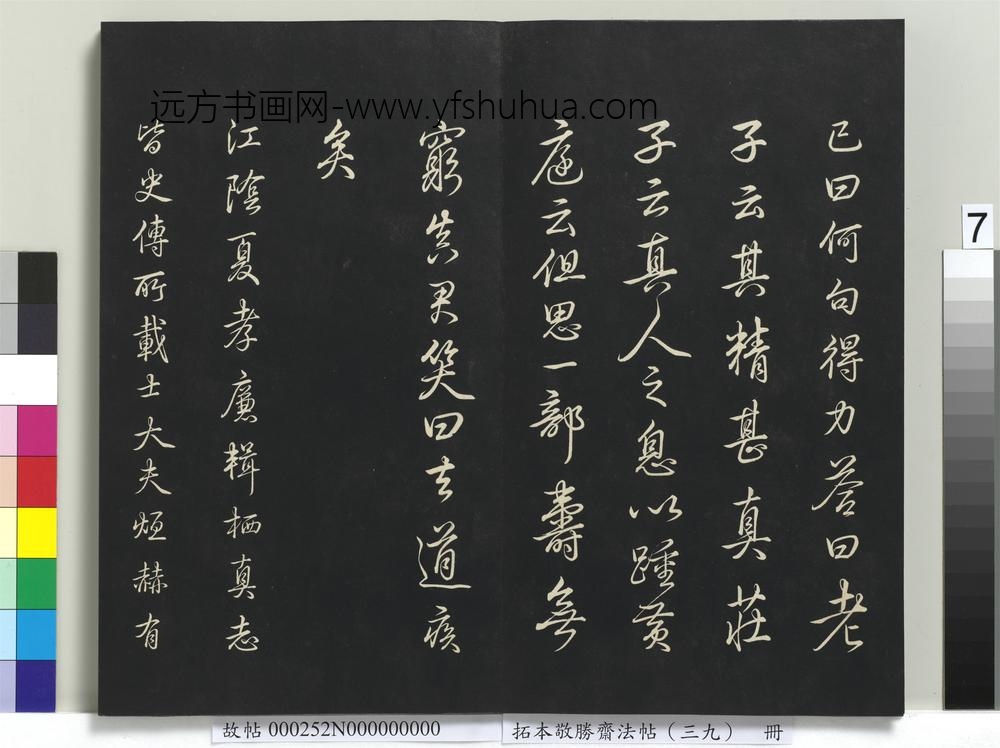 远方书画网-www.yfshuhua.com
已曰何句得力答曰老
子云其精甚真莊
子云真人之息以踵黃
庭云但思一部壽無
窮笑曰去道
矣
江陰夏孝廉輯栖真志
皆史傳所載士大夫烜赫有
7
故帖 000252N000000000
拓本敬勝齋法帖（三九） 冊